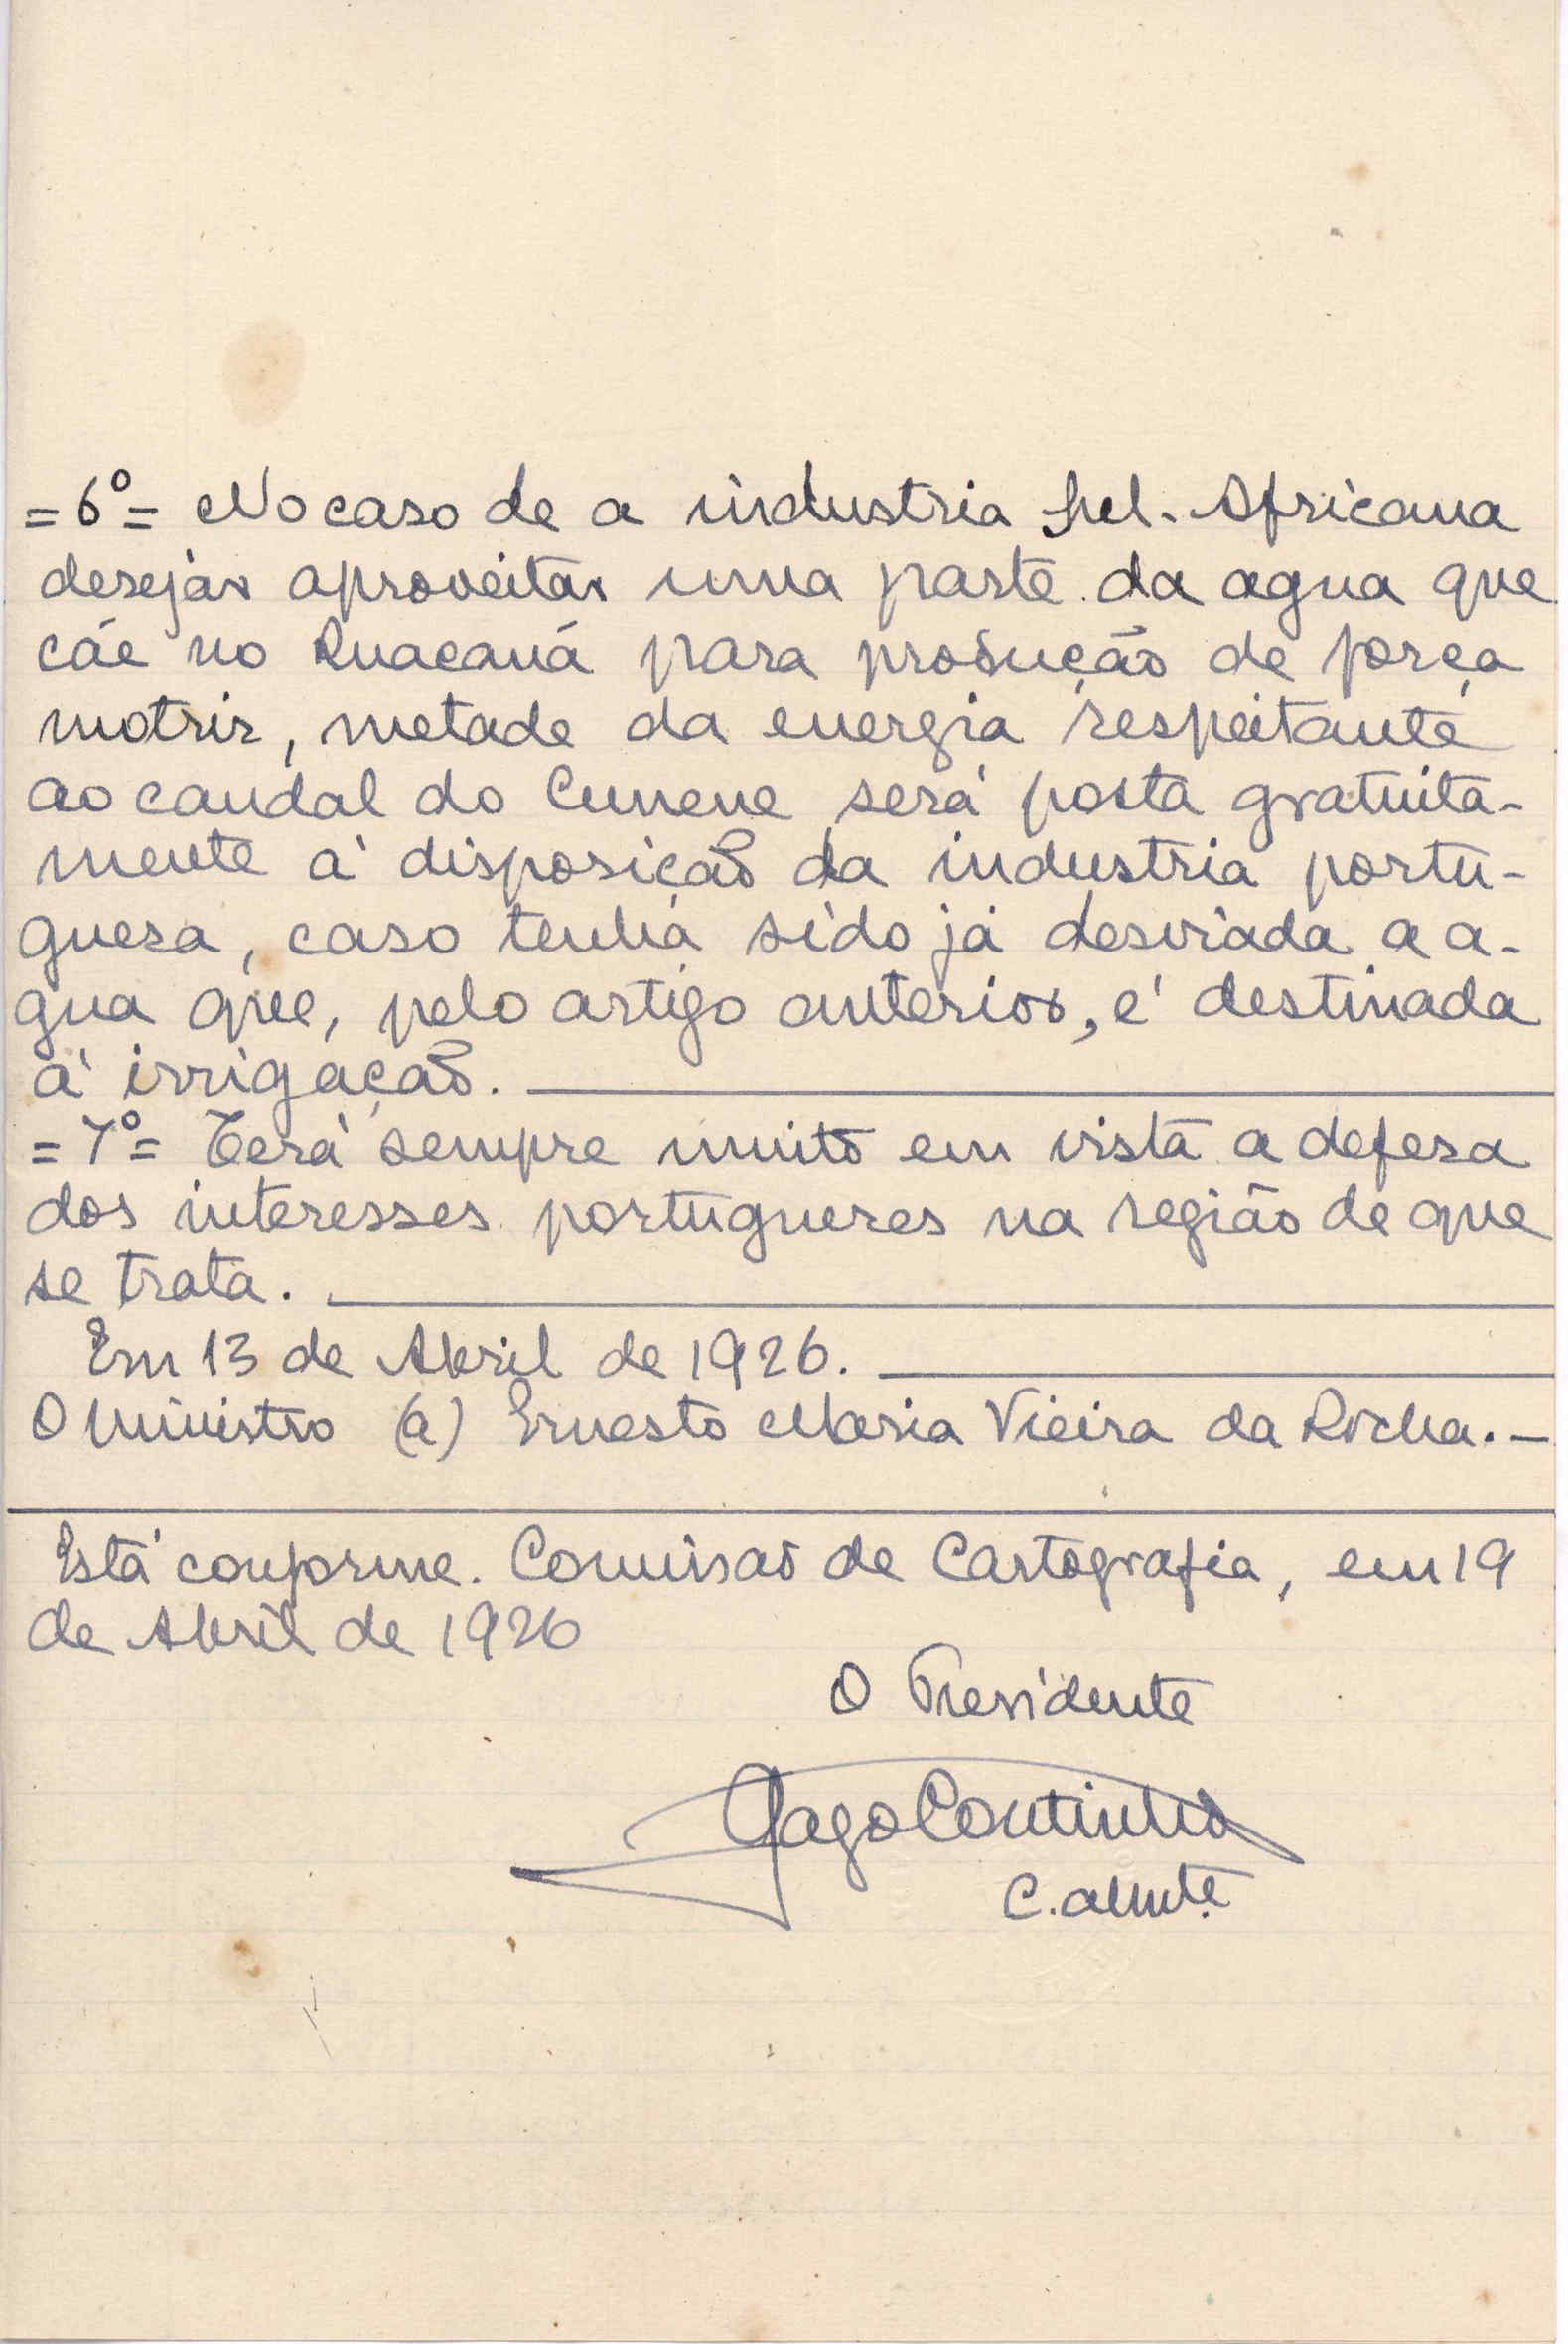 =6º= No caso de a industria Sul-Africana
desejar aproveitar uma parte da agua que
cáe no Ruacaná para produção de força
motriz, metade da energia respeitante
ao caudal do Cunene será posta gratuita-
mente á disposição da industria portu-
gueza, caso tenha sido já desviada a a-
gua que, pelo artigo anterior, é destinada
á irrigação.
=7º= Terá sempre muito em vista a defeza
dos interesses portuguezes na região de que
se trata.
Em 13 de Abril de 1926.
O Ministro (a) Ernesto Maria Vieira da Rocha.-
Está conforme. Comissaõ de Cartografia, em 19
de Abril de 1926
O Presidente
Gago Coutinho
C. almte.